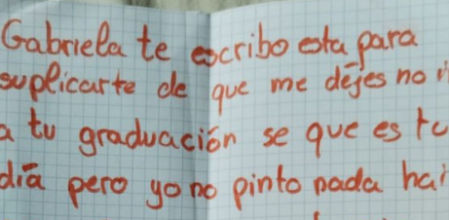 Gabriela te escribo esta para
suplicarte de que me dejes no
a tu graduación se que es tu
día pero yo no pinto nada hai